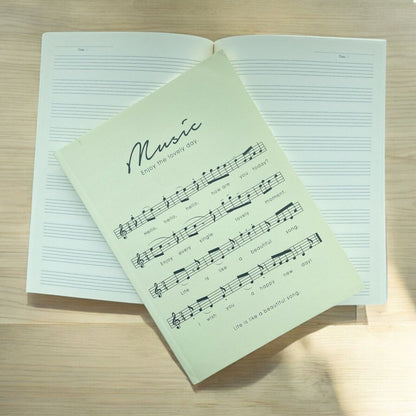 Music
Enjoy the lovely day.
Hello, hello, hello, how are you today?
Enjoy every single lovely moment.
Life is like a beautiful song.
I wish you a happy new day!
Life is like a beautiful song.